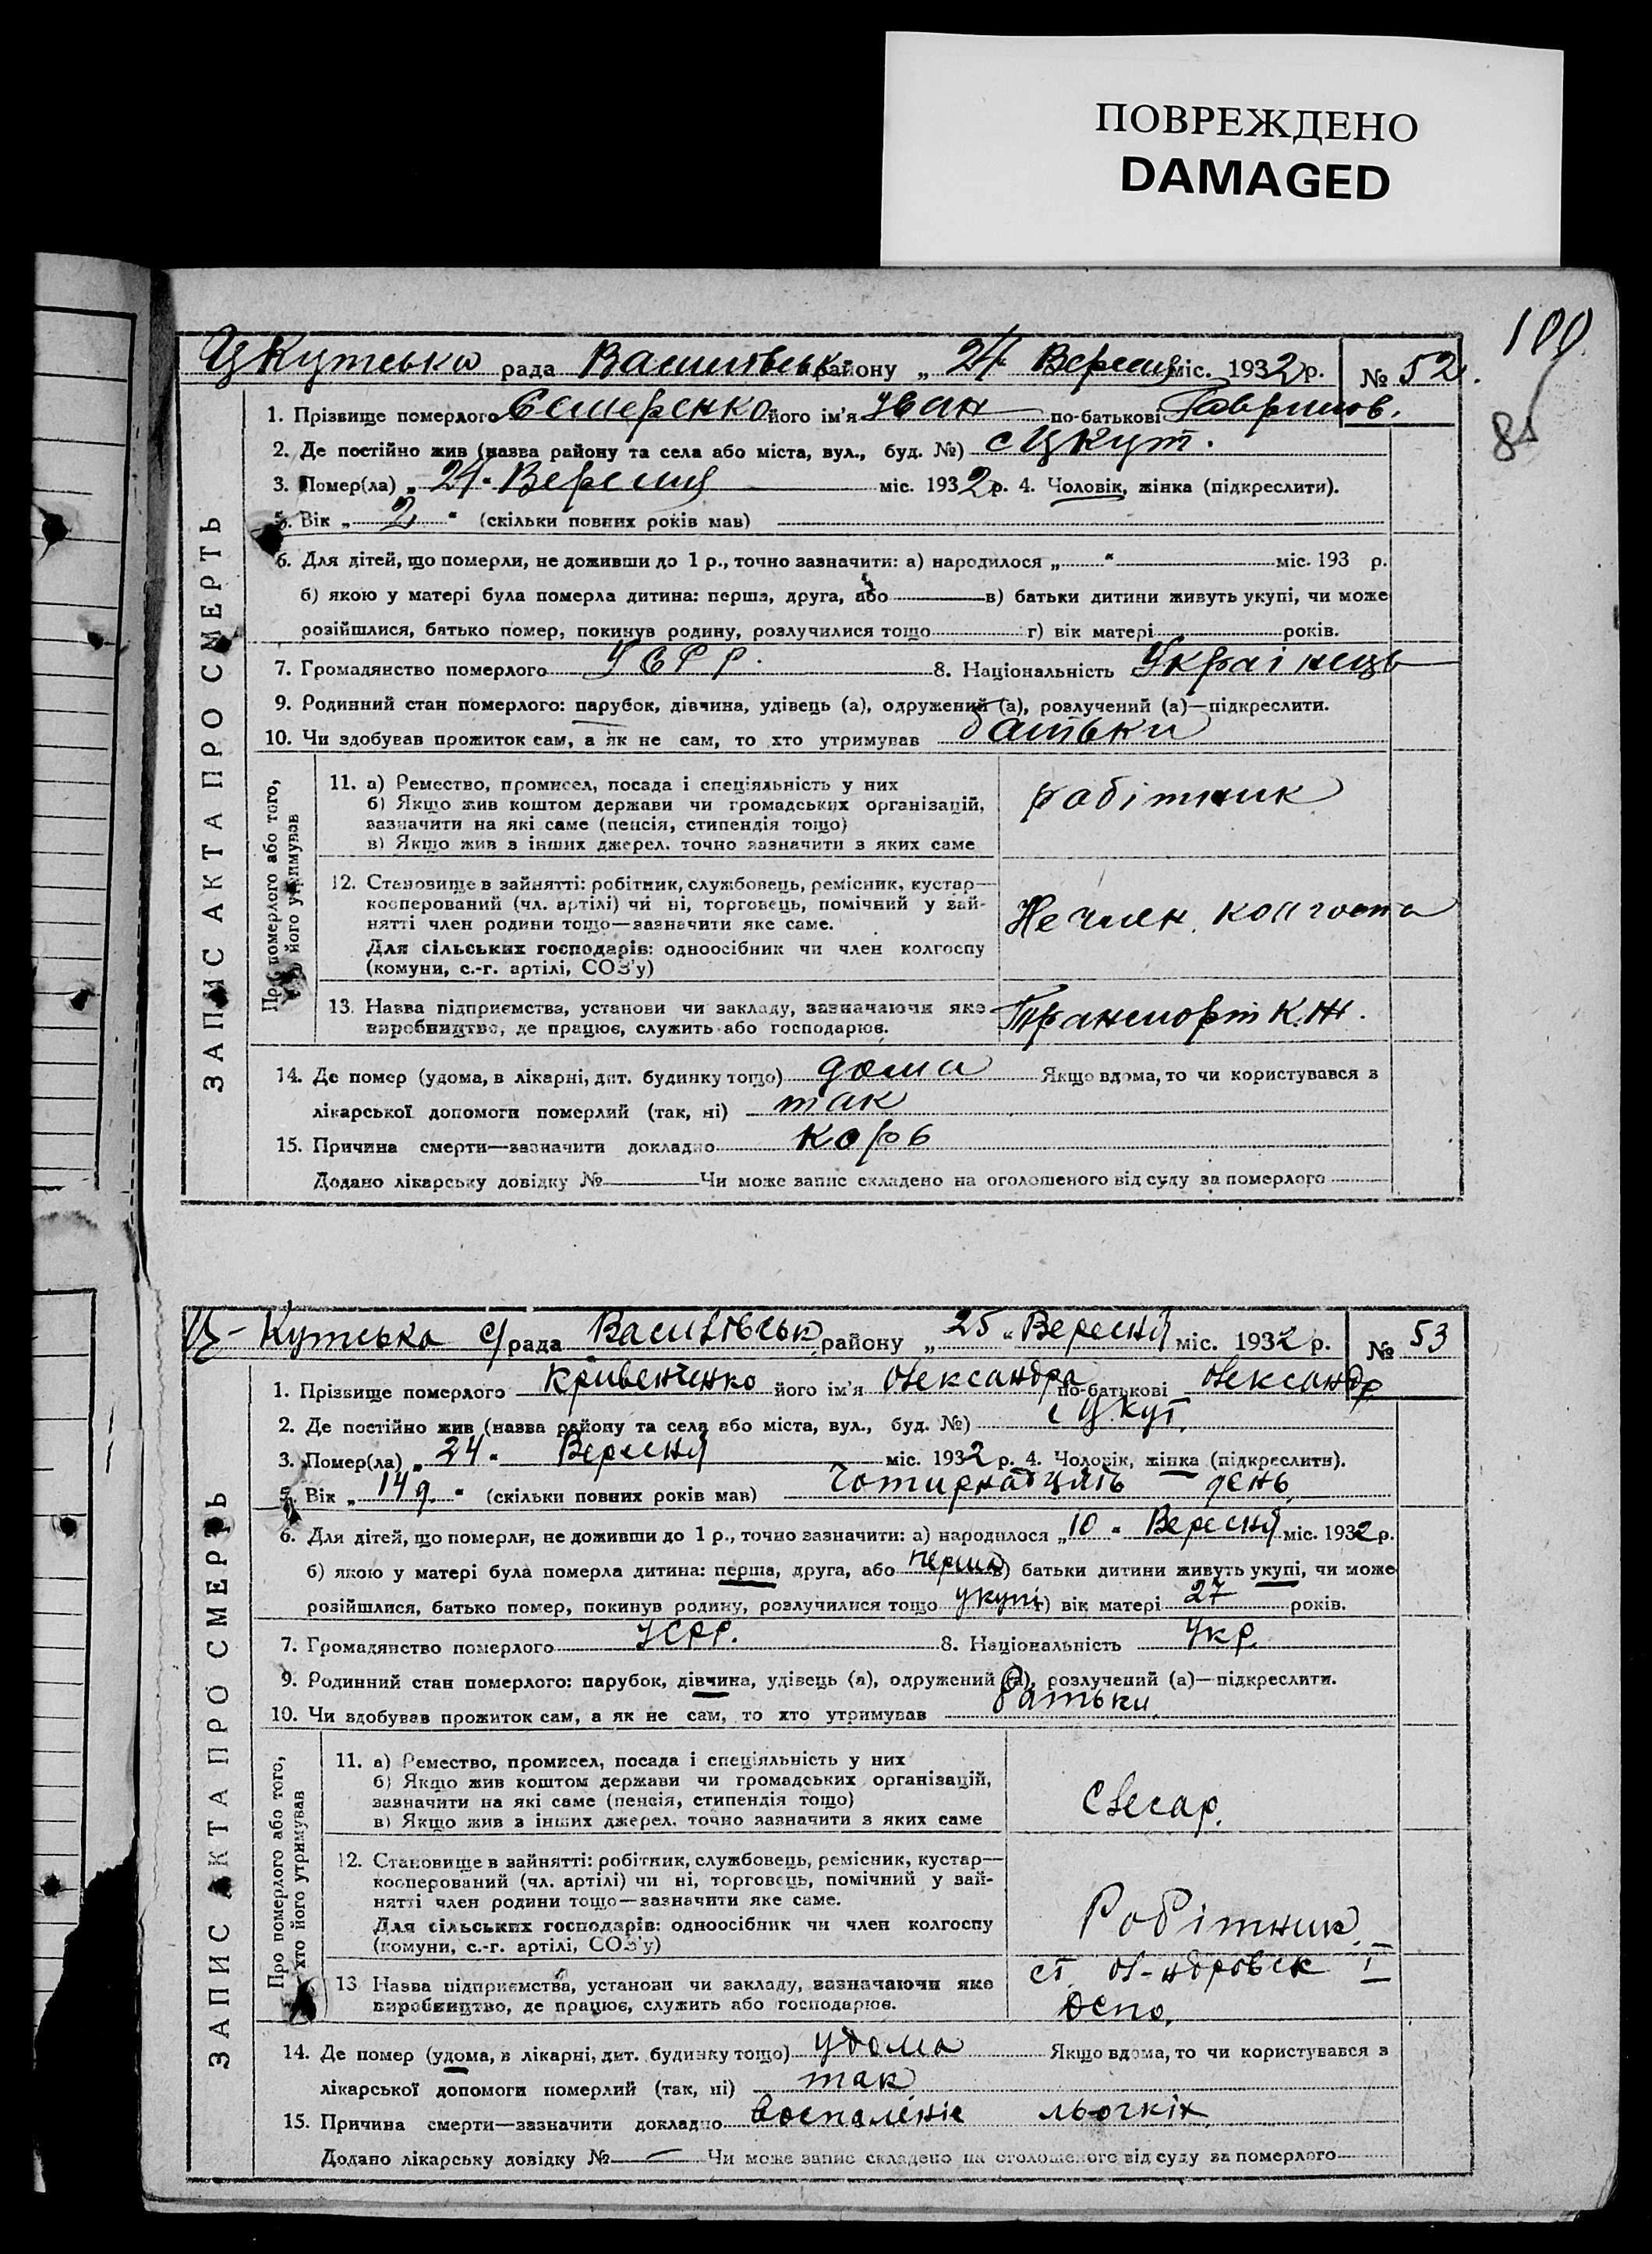 ПОВРЕЖДЕНО
DAMAGED
100
85
Цкутська рада Василівськ району „ 24 Вересня міс. 1932 р. № 52.
1. Прізвище померлого Семеренко його ім'я Іван по-батькові Гаврилов.
2. Де постійно жив (назва району та села або міста, вул., буд. №) с Цкут.
3. Помер(ла) „ 24 " Вересня міс. 1932 р. 4. Чоловік, жінка (підкреслити).
5. Вік „ 2 " (скільки повних років мав)
6. Для дітей, що померли, не доживши до 1 р., точно зазначити: а) народилося „ " міс. 193 р.
б) якою у матері була померла дитина: перша, друга, або в) батьки дитини живуть укупі, чи може
розійшлися, батько помер, покинув родину, розлучилися тощо г) вік матері років.
7. Громадянство померлого УСРР. 8. Національність Українець
9. Родинний стан померлого: парубок, дівчина, удівець (а), одружений (а), розлучений (а)—підкреслити.
10. Чи здобував прожиток сам, а як не сам, то хто утримував батьки
ЗАПИС АКТА ПРО СМЕРТЬ
Про померлого або того,
хто його утримував
11. а) Ремество, промисел, посада і спеціяльність у них
б) Якщо жив коштом держави чи громадських організацій,
зазначити на які саме (пенсія, стипендія тощо)
в) Якщо жив з інших джерел, точно зазначити з яких саме
робітник
12. Становище в зайнятті: робітник, службовець, ремісник, кустар—
кооперований (чл. артілі) чи ні, торговець, помічний у зай-
нятті член родини тощо—зазначити яке саме.
Для сільських господарів: одноосібник чи член колгоспу
(комуни, с.-г. артілі, СОЗ'у)
Не член колгоспа
13. Назва підприємства, установи чи закладу, зазначаючи яке
виробництво, де працює, служить або господарює.
Транспорт К.Ж.
14. Де помер (удома, в лікарні, дит. будинку тощо) дома Якщо вдома, то чи користувався з
лікарської допомоги померлий (так, ні) так
15. Причина смерти—зазначити докладно корь
Додано лікарську довідку № Чи може запис складено на оголошеного від суду за померлого
Ц-Кутська с/рада Василівськ району „ 25 " Вересня міс. 1932 р. № 53
1. Прізвище померлого Кривенченко його ім'я Олександра по-батькові Олександр
2. Де постійно жив (назва району та села або міста, вул., буд. №) с Ц.Кут.
3. Помер(ла) „ 24 " Вересня міс. 1932 р. 4. Чоловік, жінка (підкреслити).
5. Вік „ 14 д. " (скільки повних років мав) Чотирнадцять день
6. Для дітей, що померли, не доживши до 1 р., точно зазначити: а) народилося „ 10 " Вересня міс. 1932 р.
б) якою у матері була померла дитина: перша, друга, або перша в) батьки дитини живуть укупі, чи може
розійшлися, батько помер, покинув родину, розлучилися тощо укупі г) вік матері 27 років.
7. Громадянство померлого УСРР. 8. Національність Укр.
9. Родинний стан померлого: парубок, дівчина, удівець (а), одружений (а), розлучений (а)—підкреслити.
10. Чи здобував прожиток сам, а як не сам, то хто утримував батьки
ЗАПИС АКТА ПРО СМЕРТЬ
Про померлого або того,
хто його утримував
11. а) Ремество, промисел, посада і спеціяльність у них
б) Якщо жив коштом держави чи громадських організацій,
зазначити на які саме (пенсія, стипендія тощо)
в) Якщо жив з інших джерел, точно зазначити з яких саме
Слесар.
12. Становище в зайнятті: робітник, службовець, ремісник, кустар—
кооперований (чл. артілі) чи ні, торговець, помічний у зай-
нятті член родини тощо—зазначити яке саме.
Для сільських господарів: одноосібник чи член колгоспу
(комуни, с.-г. артілі, СОЗ'у)
Робітник.
13 Назва підприємства, установи чи закладу, зазначаючи яке
виробництво, де працює, служить або господарює.
ст. Ол-ндровск I
Депо.
14. Де помер (удома, в лікарні, дит. будинку тощо) удома Якщо вдома, то чи користувався з
лікарської допомоги померлий (так, ні) так
15. Причина смерти—зазначити докладно воспаленіє льогкіх
Додано лікарську довідку № — Чи може запис складено на оголошеного від суду за померлого